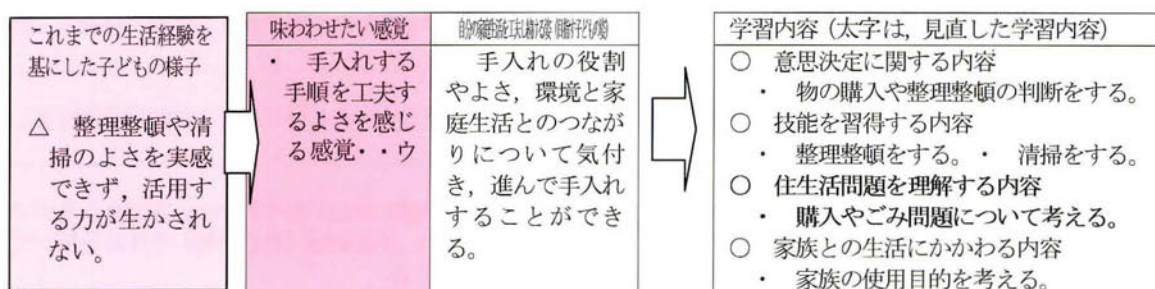 これまでの生活経験を
基にした子どもの様子
△ 整理整頓や清
掃のよさを実感
できず，活用す
る力が生かされ
ない。
味わわせたい感覚
・ 手入れする
手順を工夫す
るよさを感じ
る感覚・・ウ
手入れの役割
やよさ，環境と家
庭生活とのつなが
りについて気付
き，進んで手入れ
することができ
る。
学習内容（太字は，見直した学習内容）
○ 意思決定に関する内容
・ 物の購入や整理整頓の判断をする。
○ 技能を習得する内容
・ 整理整頓をする。・ 清掃をする。
○ 住生活問題を理解する内容
・ 購入やごみ問題について考える。
○ 家族との生活にかかわる内容
・ 家族の使用目的を考える。